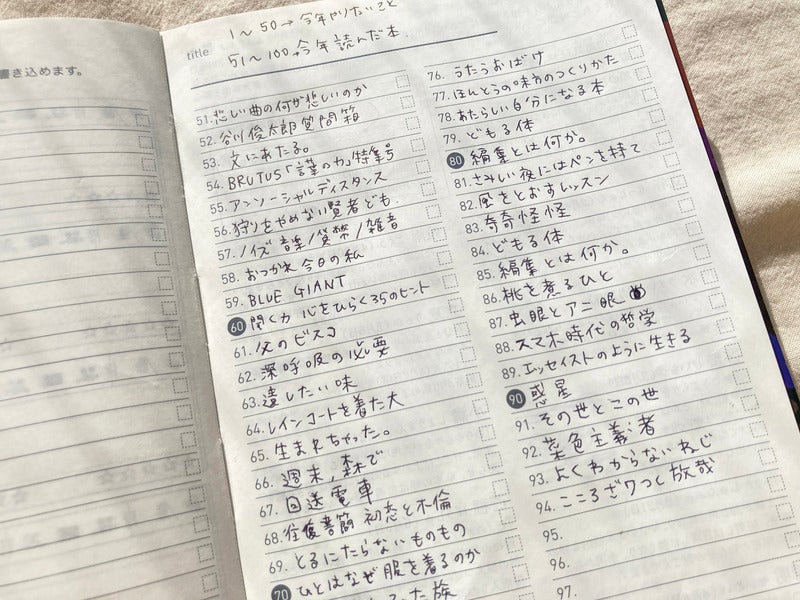 書き込めます。
title
1〜50→今年やりたいこと
51〜100→今年読んだ本
51. 悲しい曲の何が悲しいのか
52. 谷川俊太郎質問箱
53. 文にあたる。
54. BRUTUS「言葉の力」特集号
55. アンソーシャルディスタンス
56. 狩りをやめない賢者ども
57. ノイズ 音楽/貨幣/雑音
58. おつかれ今日の私
59. BLUE GIANT
60 聞く力 心をひらく35のヒント
61. 父のビスコ
62. 深呼吸の必要
63. 遺したい味
64. レインコートを着た犬
65. 生まれちゃった。
66. 週末、森で
67. 回送電車
68. 往復書簡 初恋と不倫
69. とるにたらないものもの
70 ひとはなぜ服を着るのか
った族
76. うたうおばけ
77. ほんとうの味方のつくりかた
78. あたらしい自分になる本
79. どもる体
80 編集とは何か。
81. さみしい夜にはペンを持て
82. 風をとおすレッスン
83. 奇奇怪怪
84. どもる体
85. 編集とは何か。
86. 桃を煮るひと
87. 虫眼とアニ眼
88. スマホ時代の哲学
89. エッセイストのように生きる
90 惑星
91. その世とこの世
92. 菜色主義者
93. よくわからないねじ
94. こころざわつく放哉
95.
96.
97.